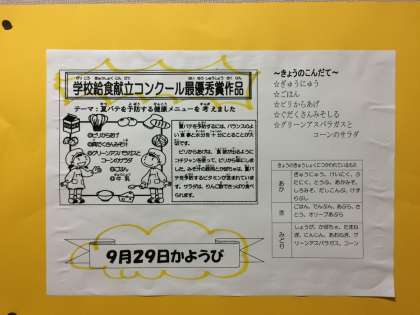 学校給食献立コンクール最優秀賞作品
がっこうきゅうしょくこんだて
さいゆうしゅうしょうさくひん
テーマ:夏バテを予防する健康メニューを考えました
◎ピリからあげ
◎具だくさんみそ汁
◎グリーンアスパラガスと
コーンのサラダ
◎ごはん
◎牛乳
夏バテを予防するには、バランスのよ
い食事と水分を十分にとることが大切
です。
ピリからあげは、食欲が出るように
コチジャンを使って、ピリから味にしま
した。みそ汁の豚肉とかぼちゃは、夏バ
テを予防するビタミンが含まれていま
す。サラダは、りんご酢でさっぱり食べ
られます。
9月29日かようび
~きょうのこんだて~
☆ぎゅうにゅう
☆ごはん
☆ピリからあげ
☆ぐだくさんみそしる
☆グリーンアスパラガスと
コーンのサラダ
きょうのきゅうしょくにつかわれているもの
あか
ぎゅうにゅう、けいにく、ぶ
たにく、とうふ、あかみそ、
しろみそ、だしこんぶ、けず
りぶし
き
ごはん、でんぷん、あぶら、さ
とう、オリーブあぶら
みどり
しょうが、かぼちゃ、たまね
ぎ、にんじん、あおねぎ、グ
リーンアスパラガス、コーン